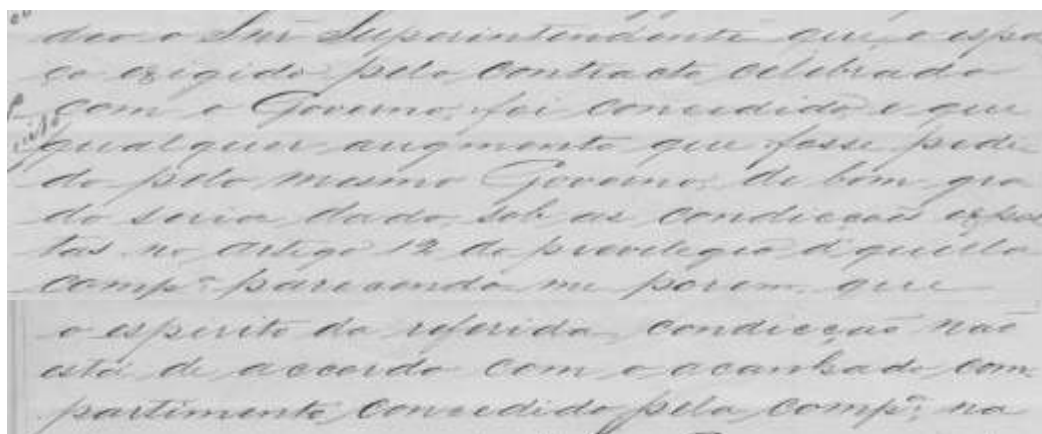 deo o Snr Superintendente que, o espa
ço exigido pelo contracto celebrado
com o Governo, foi concedido, e que
qualquer augmento que fosse pedi-
do pelo mesmo Governo, de bom gra
do seria dado, sob as condicções expos
tas no artigo 12 do previlegio d'quella
Compª parecendo me porem, que
o espirito da referida condicção não
está de accordo com o acanhado com-
partimento, concedido pela Compª, na